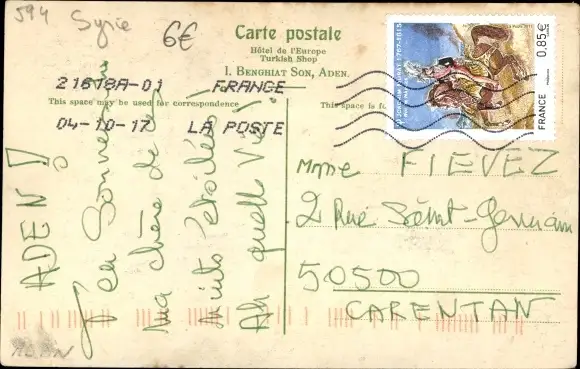 594 Syrie 6€
Carte postale
Hôtel de l'Europe
Turkish Shop
I. BENGHIAT SON, ADEN.
This space may be used for correspondence
This space is f
21618A-01 FRANCE
04-10-17 LA POSTE
0,85€
FRANCE
ADEN !
J'en
ma chère
Ah quelle vie
Mme FIEVEZ
2 Rue Saint-Germain
50500
CARENTAN
ADEN